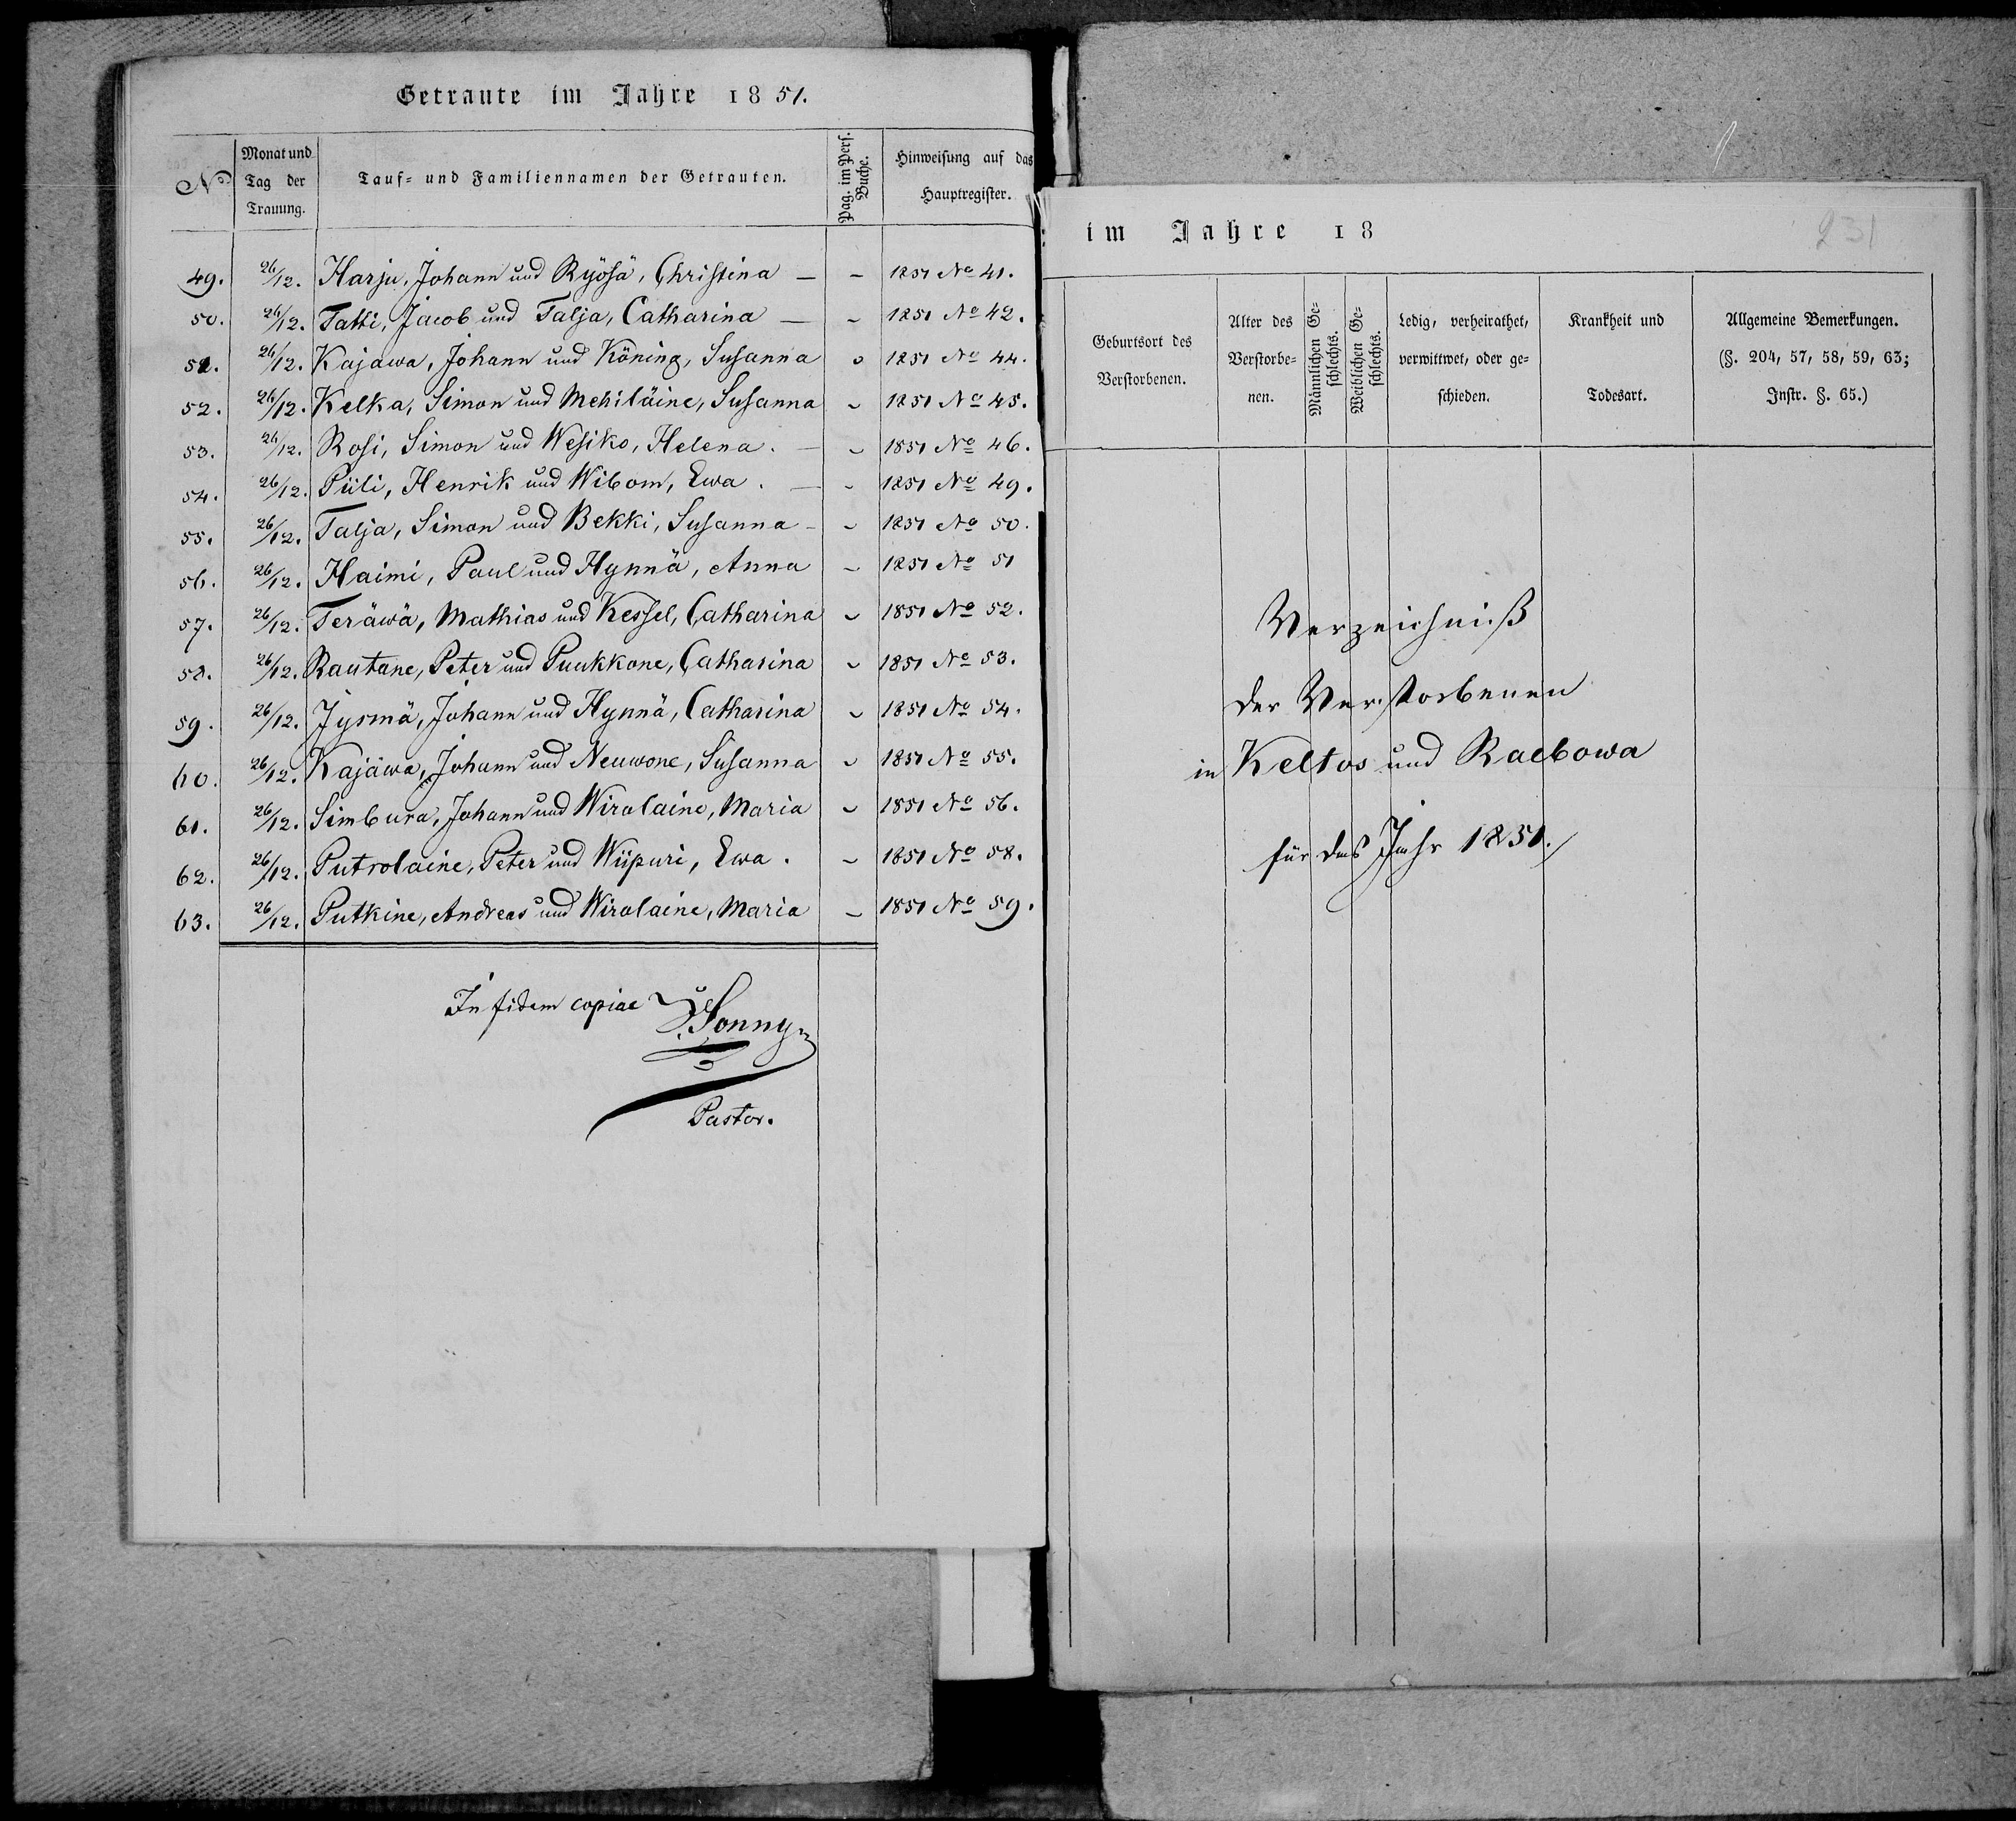 Getraute im Jahre 1851.
No Monat und Tag der Trauung. Tauf- und Familiennamen der Getrauten. Pag. im Pers. Buche. Hinweisung auf das Hauptregister.
49. 26/12. Harju, Johann und Ryösä, Christina — - 1851 No 41.
50. 26/12. Tatti, Jacob und Talja, Catharina — - 1851 No 42.
51. 26/12. Kajawa, Johann und Köning, Susanna - 1851 No 44.
52. 26/12. Kelka, Simon und Mehiläine, Susanna - 1851 No 45.
53. 26/12. Rosi, Simon und Wesiko, Helena. — - 1851 No 46.
54. 26/12. Piili, Henrik und Wibom, Ewa. — - 1851 No 49.
55. 26/12. Talja, Simon und Bekki, Susanna - - 1851 No 50.
56. 26/12. Haimi, Paul und Hynnä, Anna - 1851 No 51
57. 26/12. Teräwä, Mathias und Kessel, Catharina - 1851 No 52.
58. 26/12. Rautane, Peter und Puukkone, Catharina - 1851 No 53.
59. 26/12. Jysmä, Johann und Hynnä, Catharina - 1851 No 54.
60. 26/12. Kajawa, Johann und Neuwone, Susanna - 1851 No 55.
61. 26/12. Simbura, Johann und Wirolaine, Maria - 1851 No 56.
62. 26/12. Putrolaine, Peter und Wiipuri, Ewa. - 1851 No 58.
63. 26/12. Putkine, Andreas und Wirolaine, Maria - 1851 No 59.
In fidem copiae Sonny
Pastor.
im Jahre 18
231
Geburtsort des Verstorbenen. Alter des Verstorbenen. Männlichen Geschlechts. Weiblichen Geschlechts. Ledig, verheirathet, verwittwet, oder geschieden. Krankheit und Todesart. Allgemeine Bemerkungen. (§. 204, 57, 58, 59, 63; Instr. §. 65.)
Verzeichniß
der Verstorbenen
in Keltos und Raebowa
für das Jahr 1851.